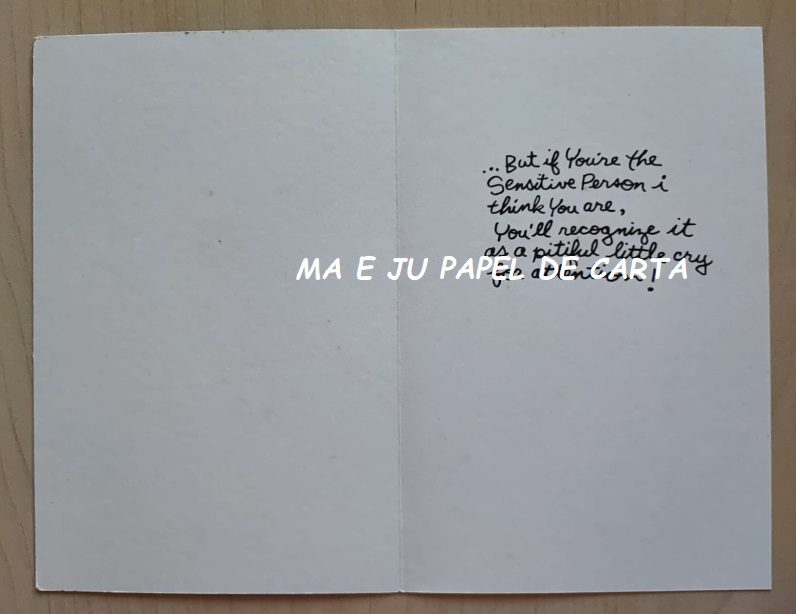 ...But if You're the
Sensitive Person i
think You are,
You'll recognize it
as a pitiful little cry
for attention!
MA E JU PAPEL DE CARTA